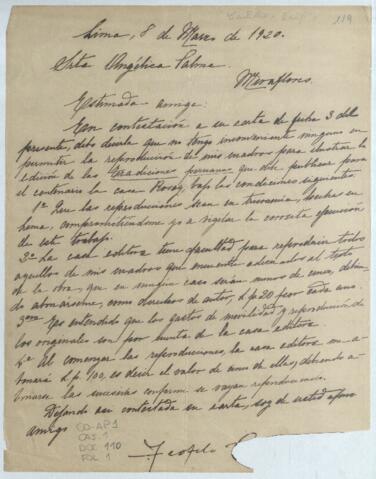 119
Lima, 8 de Marzo de 1920.
Srta Angélica Palma
Miraflores.
Estimada amiga:
En contestación a su carta de fecha 3 del
presente, debo decirle que no tengo inconveniente ninguno en
permitir la reproducción de mis cuadros para ilustrar la
edición de las tradiciones peruanas que debe publicar para
el centenario la casa bajo las condiciones siguientes
1a Que las reproducciones sean en tricromía, hechas en
Lima, comprometiéndome yo a vigilar la correcta ejecución
de este trabajo.
2a La casa editora tiene facultad para reproducir todos
aquellos de mis cuadros que encuentre adecuados al texto
de la obra, que en ningun caso serán menos de cinco, debien-
do abonárseme, como derechos de autor, Lp. 20 por cada uno.
3era Es entendido que los gastos de movilidad y reproducción de
los originales son por cuenta de la casa editora.
4a Al comenzar las reproducciones, la casa editora me a-
bonará Lp. 100, es decir el valor de cinco de ellas, debiendo a-
bonarse las sucesivas conforme se vayan reproduciendo.
Dejando asi contestada su carta, soy de usted afmo
amigo
Teófilo
CO-AP1
CAJ. 1
DOC 110
FOL 1